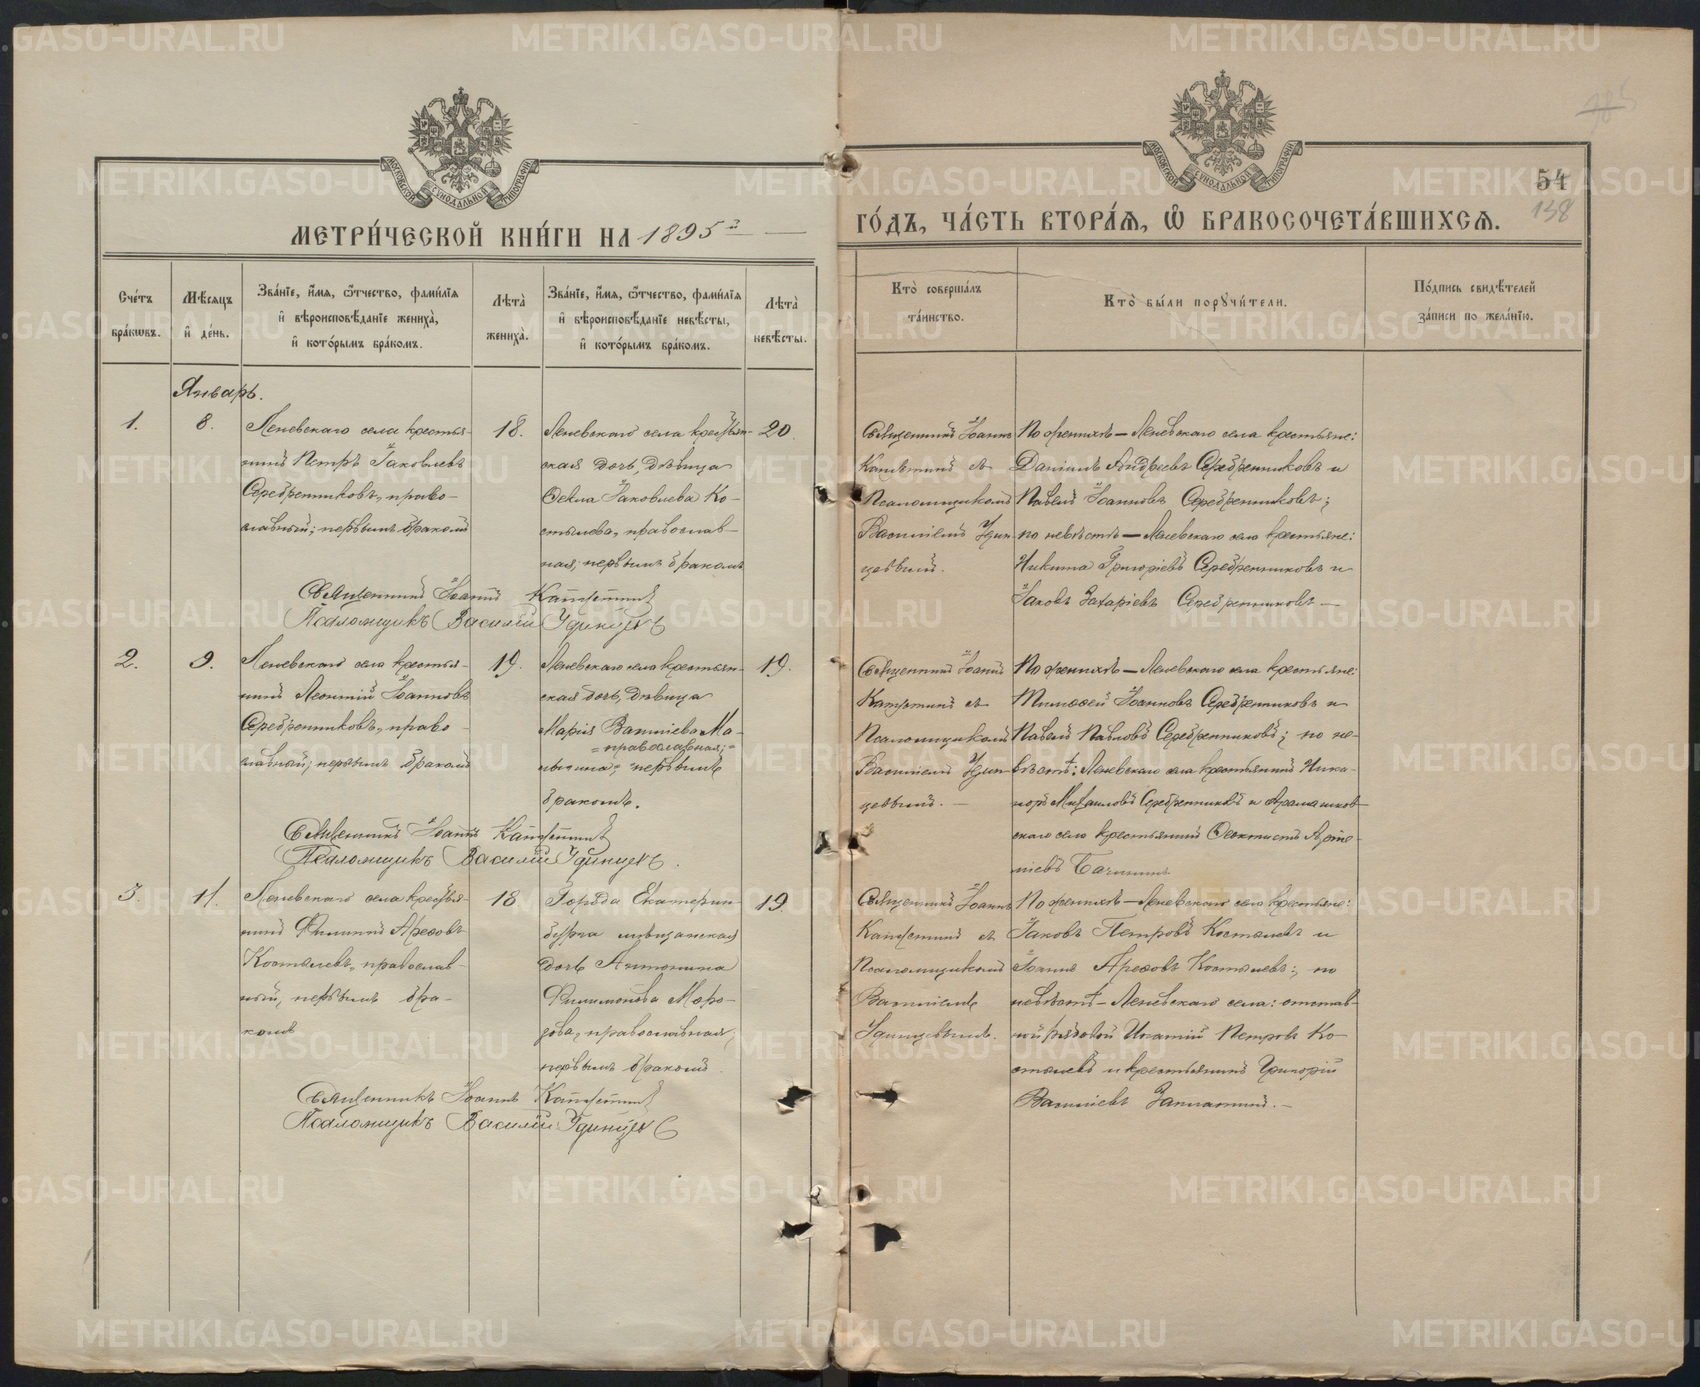 МЕТРИ́ЧЕСКОЙ КНИ́ГИ НА 1895й
ГО́ДЪ, ЧА́СТЬ ВТОРА́Ѧ, Ѽ БРАКОСОЧЕТА́ВШИХСѦ.
54
138
Сче́тъ бра́кѡвъ.
Мѣ́сяцъ и҆ де́нь.
Зва́нїе, и҆́мя, ѻ҆́тчество, фами́лїя и҆ вѣроисповѣ́данїе жениха̀, и҆ кото́рымъ бра́комъ.
Лѣта̀ жениха̀.
Зва́нїе, и҆́мя, ѻ҆́тчество, фами́лїя и҆ вѣроисповѣ́данїе невѣ́сты, и҆ кото́рымъ бра́комъ.
Лѣта̀ невѣ́сты.
Кто̀ соверша́лъ та́инство.
Кто̀ бы́ли порꙋчи́тели.
По́дпись свидѣ́телей за́писи по жела́нїю.
Январь.
1.
8.
Леневскаго села крестья-
нинъ Петръ Іаковлевъ
Серебренниковъ, право-
славный; первымъ бракомъ
18.
Леневскаго села крестьян-
ская дочь, дѣвица
Ѳекла Іаковлева Ко-
стылева, православ-
ная; первымъ бракомъ
20
Священникъ Іоаннъ
съ
Псаломщикомъ
Василіемъ Удин-
цевымъ.
По женихѣ — Леневскаго села крестьяне:
Даніилъ Андреевъ Серебренниковъ и
Павелъ Іоанновъ Серебренниковъ;
по невѣстѣ — Леневскаго села крестьяне:
Никита Григоріевъ Серебренниковъ и
Іаковъ Захаріевъ Серебренниковъ —
Священникъ Іоаннъ
Псаломщикъ Василій Удинцевъ
2.
9.
Леневскаго села крестья-
нинъ Леонтій Іоанновъ
Серебренниковъ, право-
славный; первымъ бракомъ
19.
Леневскаго села крестьян-
ская дочь, дѣвица
Марія Василіева Ма-
=православная;=
первымъ
бракомъ.
19.
Священникъ Іоаннъ
съ
Псаломщикомъ
Василіемъ Удин-
цевымъ. —
По женихѣ — Леневскаго села крестьяне:
Тимоѳей Іоанновъ Серебренниковъ и
Павелъ Павловъ Серебренниковъ; по не-
вѣстѣ: Леневскаго села крестьянинъ Ника-
норъ Михаиловъ Серебренниковъ и Арамашков-
скаго села крестьянинъ Ѳеоктистъ Арте-
міевъ
Священникъ Іоаннъ
Псаломщикъ Василій Удинцевъ.
3.
11.
Леневскаго села крестья-
нинъ Филиппъ Ареѳовъ
Костылевъ, православ-
ный, первымъ бра-
комъ
18.
Города Екатерин-
бурга мѣщанская
дочь Антонина
Филимонова Моро-
зова, православная,
первымъ бракомъ.
19.
Священникъ Іоаннъ
съ
Псаломщикомъ
Василіемъ
Удинцевымъ.
По женихѣ — Леневскаго села крестьяне:
Іаковъ Петровъ Костылевъ и
Іоаннъ Ареѳовъ Костылевъ; по
невѣстѣ — Леневскаго села: отстав-
ной рядовой Игнатій Петровъ Ко-
стылевъ и крестьянинъ Григорій
Василіевъ —
Священникъ Іоаннъ
Псаломщикъ Василій Удинцевъ
METRIKI.GASO-URAL.RU